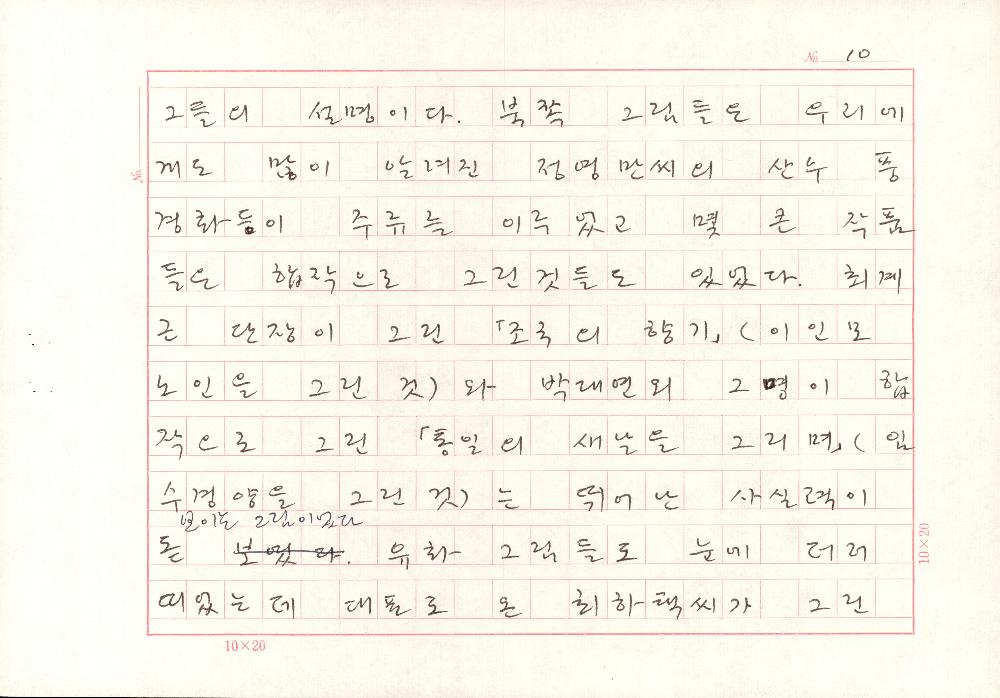 No. 10
그들의 설명이다. 북쪽 그림들은 우리에
No.
게도 많이 알려진 정영만씨의 산수 풍
경화등이 주류를 이루었고 몇 큰 작품
들은 합작으로 그린것들도 있었다. 최계
근 단장이 그린 「조국의 향기」(이인모
노인을 그린 것)와 박대연외 2명이 합
작으로 그린 「통일의 새날을 그리며」(임
수경양을 그린 것)는 뛰어난 사실력이
보이는 그림이었다
돋보였다. 유화 그림들도 눈에 더러
띠었는데 대표로 온 최하택씨가 그린
10×20
10×20